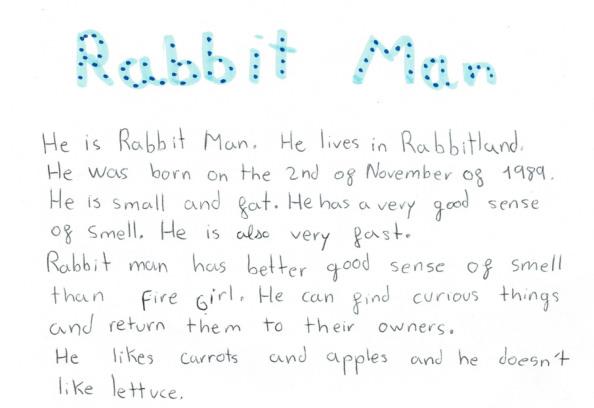 Rabbit Man
He is Rabbit Man. He lives in Rabbitland.
He was born on the 2nd of November of 1989.
He is small and fat. He has a very good sense
of smell. He is also very fast.
Rabbit man has better good sense of smell
than Fire Girl. He can find curious things
and return them to their owners.
He likes carrots and apples and he doesn't
like lettuce.